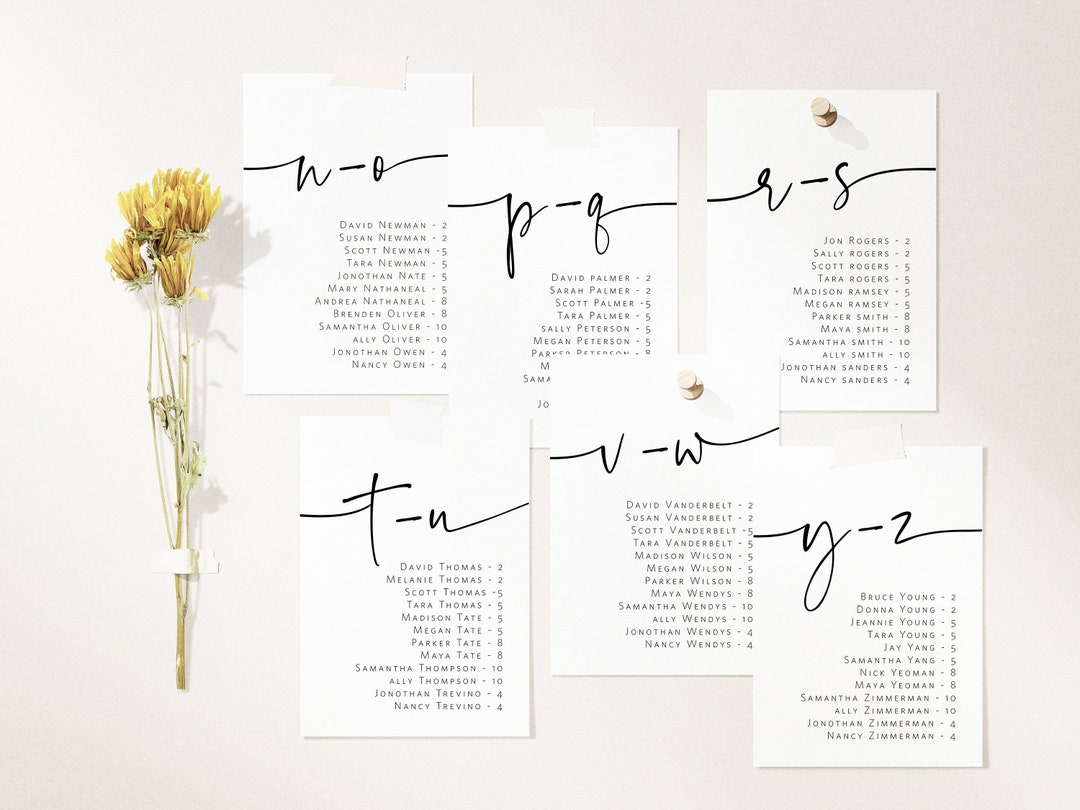 n-o
David Newman - 2
Susan Newman - 2
Scott Newman -5
Tara Newman - 5
Jonothan Nate - 5
Mary Nathaneal - 5
Andrea Nathaneal - 8
Brenden Oliver - 8
Samantha Oliver - 10
ally Oliver - 10
Jonothan Owen - 4
Nancy Owen - 4
p-q
David palmer - 2
Sarah Palmer - 2
Scott Palmer -5
Tara Palmer - 5
sally Peterson - 5
Megan Peterson - 5
Parker Peterson - 8
M
Sama
Jo
r-s
Jon Rogers - 2
Sally rogers - 2
Scott rogers - 5
Tara rogers - 5
Madison ramsey - 5
Megan ramsey - 5
Parker smith - 8
Maya smith - 8
Samantha smith - 10
ally smith - 10
Jonothan sanders - 4
Nancy sanders - 4
t-u
David Thomas - 2
Melanie Thomas - 2
Scott Thomas -5
Tara Thomas - 5
Madison Tate - 5
Megan Tate - 5
Parker Tate - 8
Maya Tate - 8
Samantha Thompson - 10
ally Thompson - 10
Jonothan Trevino - 4
Nancy Trevino - 4
v-w
David Vanderbelt - 2
Susan Vanderbelt - 2
Scott Vanderbelt -5
Tara Vanderbelt - 5
Madison Wilson - 5
Megan Wilson - 5
Parker Wilson - 8
Maya Wendys - 8
Samantha Wendys - 10
ally Wendys - 10
Jonothan Wendys - 4
Nancy Wendys - 4
y-z
Bruce Young - 2
Donna Young - 2
Jeannie Young - 5
Tara Young - 5
Jay Yang - 5
Samantha Yang - 5
Nick Yeoman - 8
Maya Yeoman - 8
Samantha Zimmerman - 10
ally Zimmerman - 10
Jonothan Zimmerman - 4
Nancy Zimmerman - 4